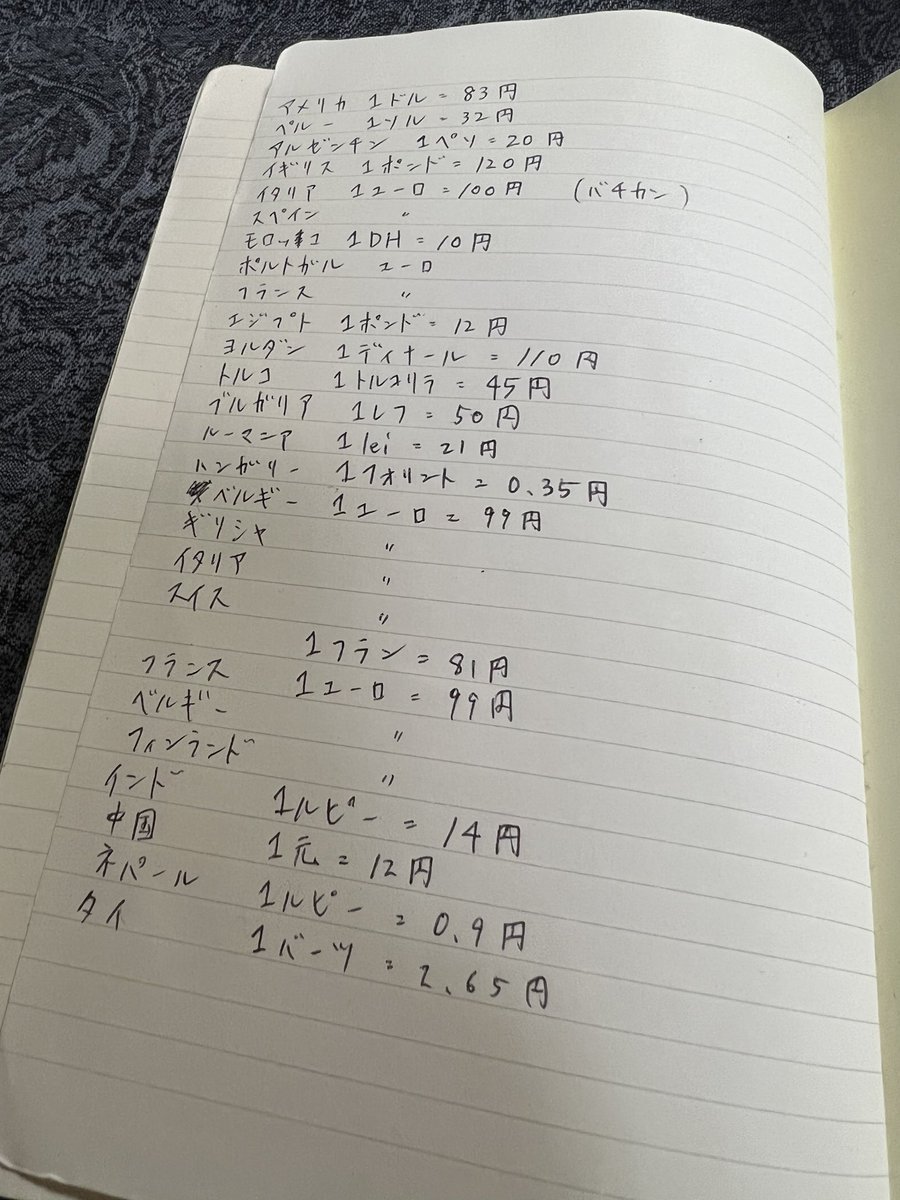 アメリカ 1ドル = 83円
ペルー 1ソル = 32円
アルゼンチン 1ペソ = 20円
イギリス 1ポンド = 120円
イタリア 1ユーロ = 100円 (バチカン)
スペイン 〃
モロッコ 1DH = 10円
ポルトガル ユーロ
フランス 〃
エジプト 1ポンド = 12円
ヨルダン 1ディナール = 110円
トルコ 1トルコリラ = 45円
ブルガリア 1レフ = 50円
ルーマニア 1lei = 21円
ハンガリー 1フォリント = 0.35円
ベルギー 1ユーロ = 99円
ギリシャ 〃
イタリア 〃
スイス 〃
1フラン = 81円
フランス 1ユーロ = 99円
ベルギー 〃
フィンランド 〃
インド 1ルピー = 14円
中国 1元 = 12円
ネパール 1ルピー = 0.9円
タイ 1バーツ = 2.65円